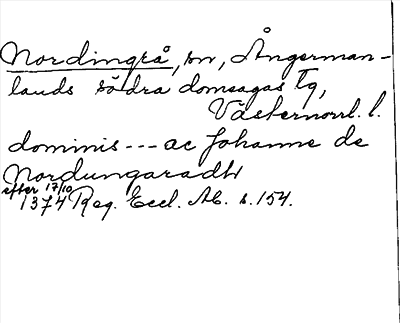 Nordingrå, sn, Ångerman-
lands södra domsagas tg,
Västernorrl. l.
dominis --- ac Johanne de
Nordungaradh
efter 17/10
1374 Reg. Eccl. Ab. s. 154.